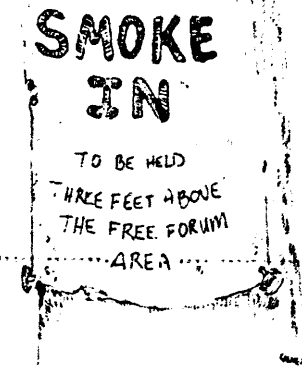 SMOKE
IN
TO BE HELD
THREE FEET ABOVE
THE FREE FORUM
AREA